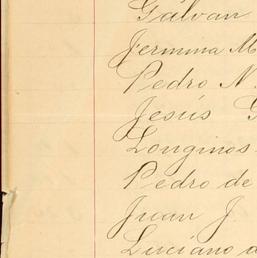 Galvan
Fermina M
Pedro N.
Jesús G
Longinos
Pedro de
Juan J.
Luciano d